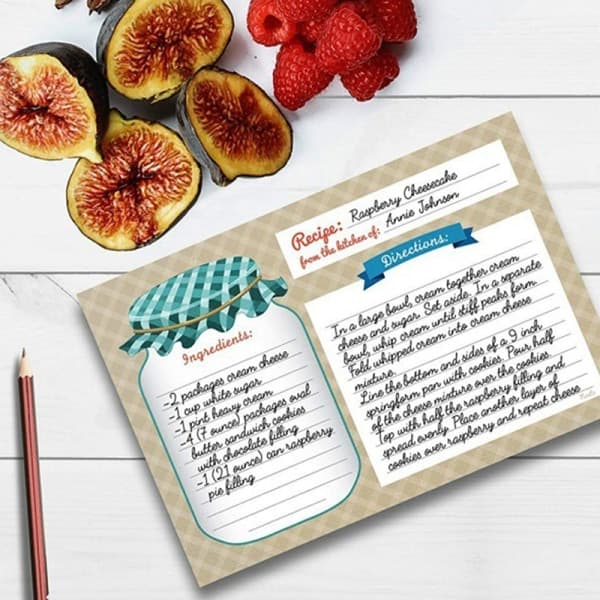 Recipe: Raspberry Cheesecake
from the kitchen of: Annie Johnson
Directions:
In a large bowl, cream together cream
cheese and sugar. Set aside. In a separate
bowl, whip cream until stiff peaks form
Fold whipped cream into cream cheese
mixture.
Line the bottom and sides of a 9 inch
springform pan with cookies. Pour half
of the cheese mixture over the cookies.
Top with half the raspberry filling and
spread evenly. Place another layer of
cookies over raspberry and repeat cheese
Ingredients:
-2 packages cream cheese
-1 cup white sugar
-1 pint heavy cream
-4 (7 ounce) packages oval
butter sandwich cookies
with chocolate filling
-1 (21 ounce) can raspberry
pie filling